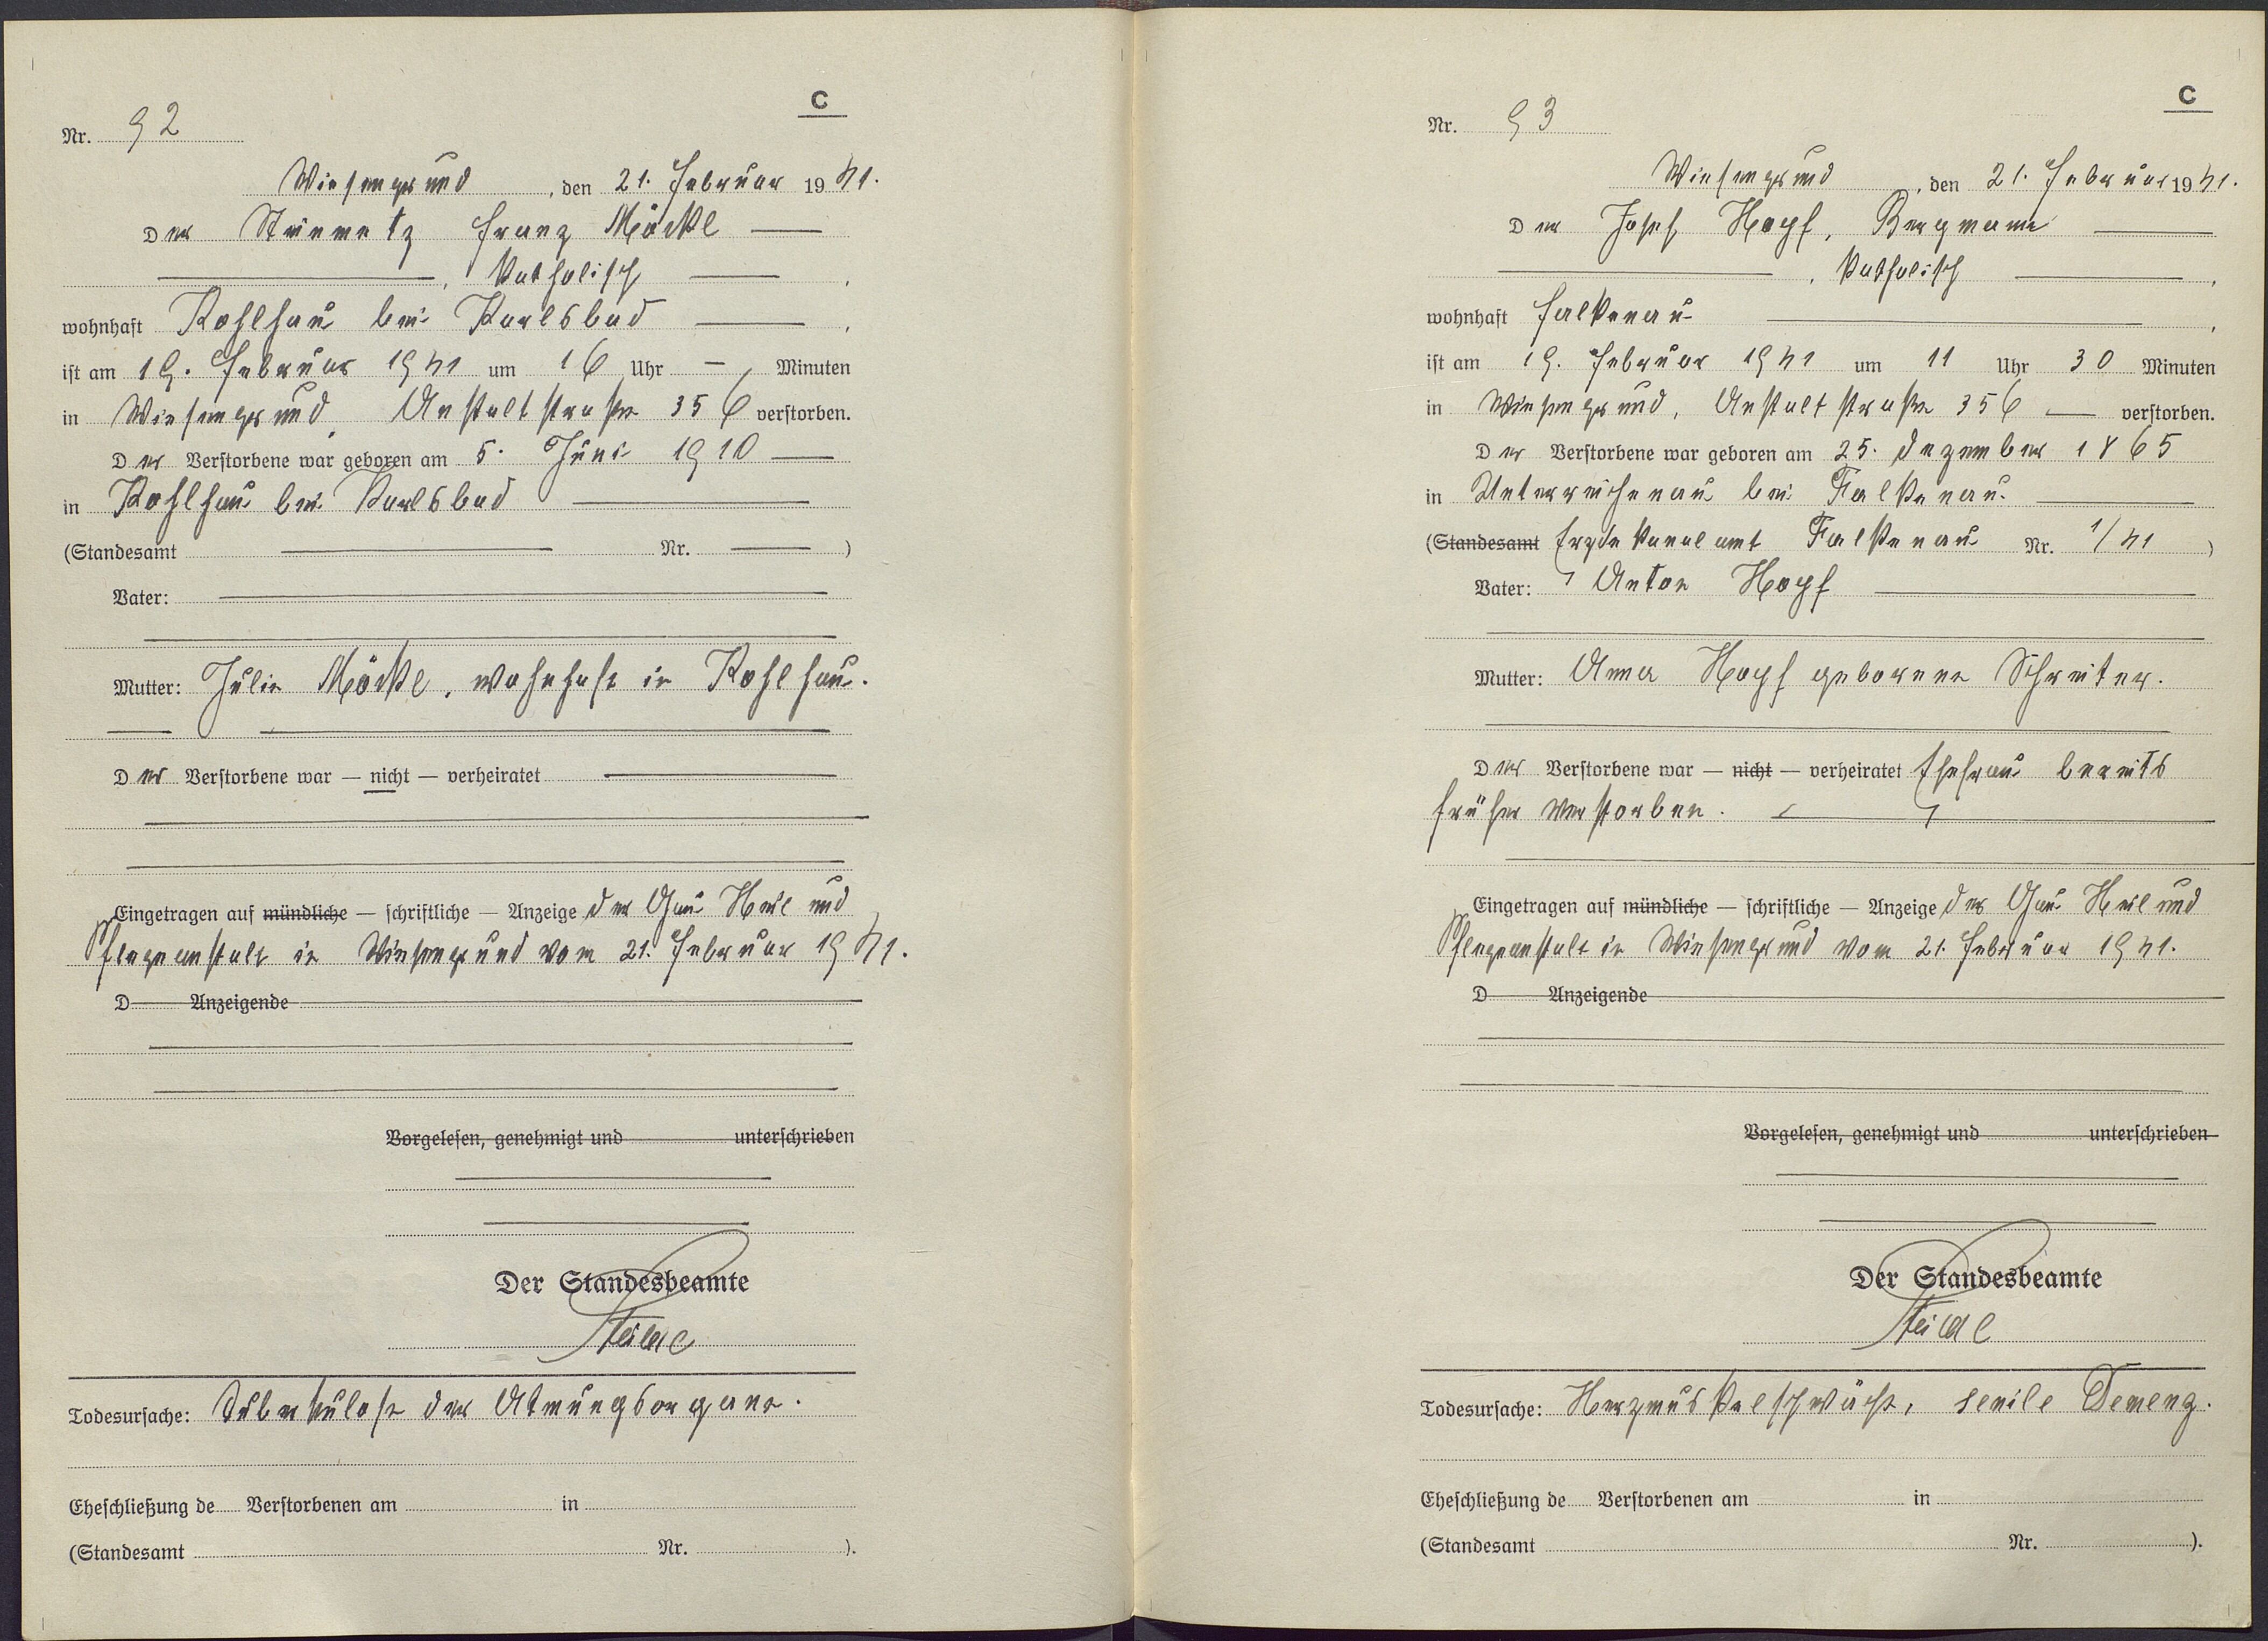 C
Nr. 92
Wiesengrund, den 21. Februar 1941.
Der Steinmetz Franz Möckl —
—, katholisch —,
wohnhaft Kohlhau bei Karlsbad —,
ist am 19. Februar 1941 um 16 Uhr — Minuten
in Wiesengrund, Anstaltstraße 356 verstorben.
Der Verstorbene war geboren am 5. Juni 1910 —
in Kohlhau bei Karlsbad —
(Standesamt — Nr. — )
Vater: —
Mutter: Julie Möckl, wohnhaft in Kohlhau.
Der Verstorbene war — nicht — verheiratet —
Eingetragen auf mündliche — schriftliche — Anzeige der Gau Heil und
Pflegeanstalt in Wiesengrund vom 21. Februar 1941.
D Anzeigende
Vorgelesen, genehmigt und unterschrieben
Der Standesbeamte
Todesursache: Tuberkulose der Atmungsorgane.
Eheschließung de Verstorbenen am in
(Standesamt Nr. ).
C
Nr. 93
Wiesengrund, den 21. Februar 1941.
Der Josef Hopf, Bergmann —
—, katholisch —,
wohnhaft Falkenau —,
ist am 19. Februar 1941 um 11 Uhr 30 Minuten
in Wiesengrund, Anstaltstraße 356 — verstorben.
Der Verstorbene war geboren am 25. Dezember 1865
in Unterreichenau bei Falkenau. —
(Standesamt Erzdekanalamt Falkenau Nr. 1/41 )
Vater: Anton Hopf —
Mutter: Anna Hopf geborene Schreiter.
Der Verstorbene war — nicht — verheiratet Ehefrau bereits
früher verstorben. —
Eingetragen auf mündliche — schriftliche — Anzeige der Gau Heil und
Pflegeanstalt in Wiesengrund vom 21. Februar 1941.
D Anzeigende
Vorgelesen, genehmigt und unterschrieben
Der Standesbeamte
Todesursache: Herzmuskelschwäche, senile Demenz.
Eheschließung de Verstorbenen am in
(Standesamt Nr. ).